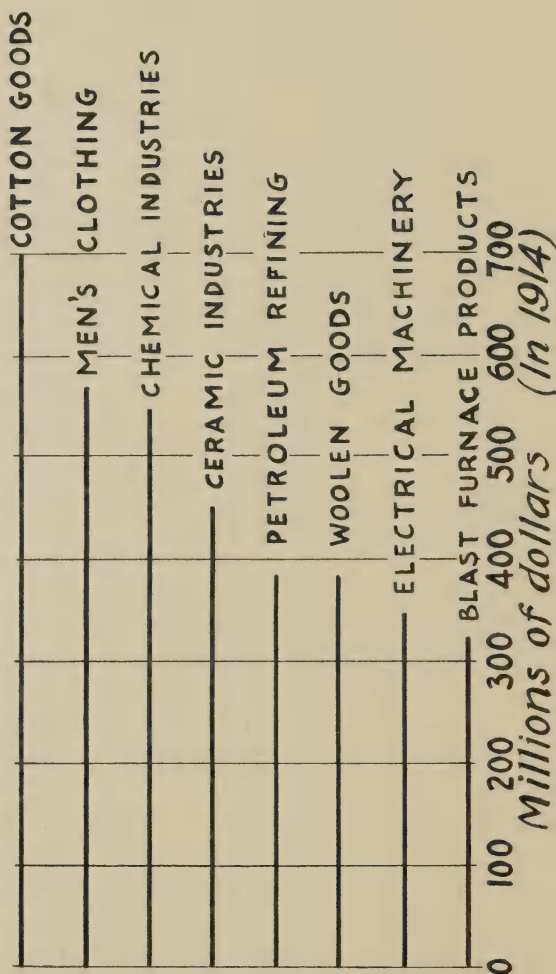 COTTON GOODS
MEN'S CLOTHING
CHEMICAL INDUSTRIES
CERAMIC INDUSTRIES
PETROLEUM REFINING
WOOLEN GOODS
ELECTRICAL MACHINERY
BLAST FURNACE PRODUCTS
0 100 200 300 400 500 600 700
Millions of dollars (In 1914)